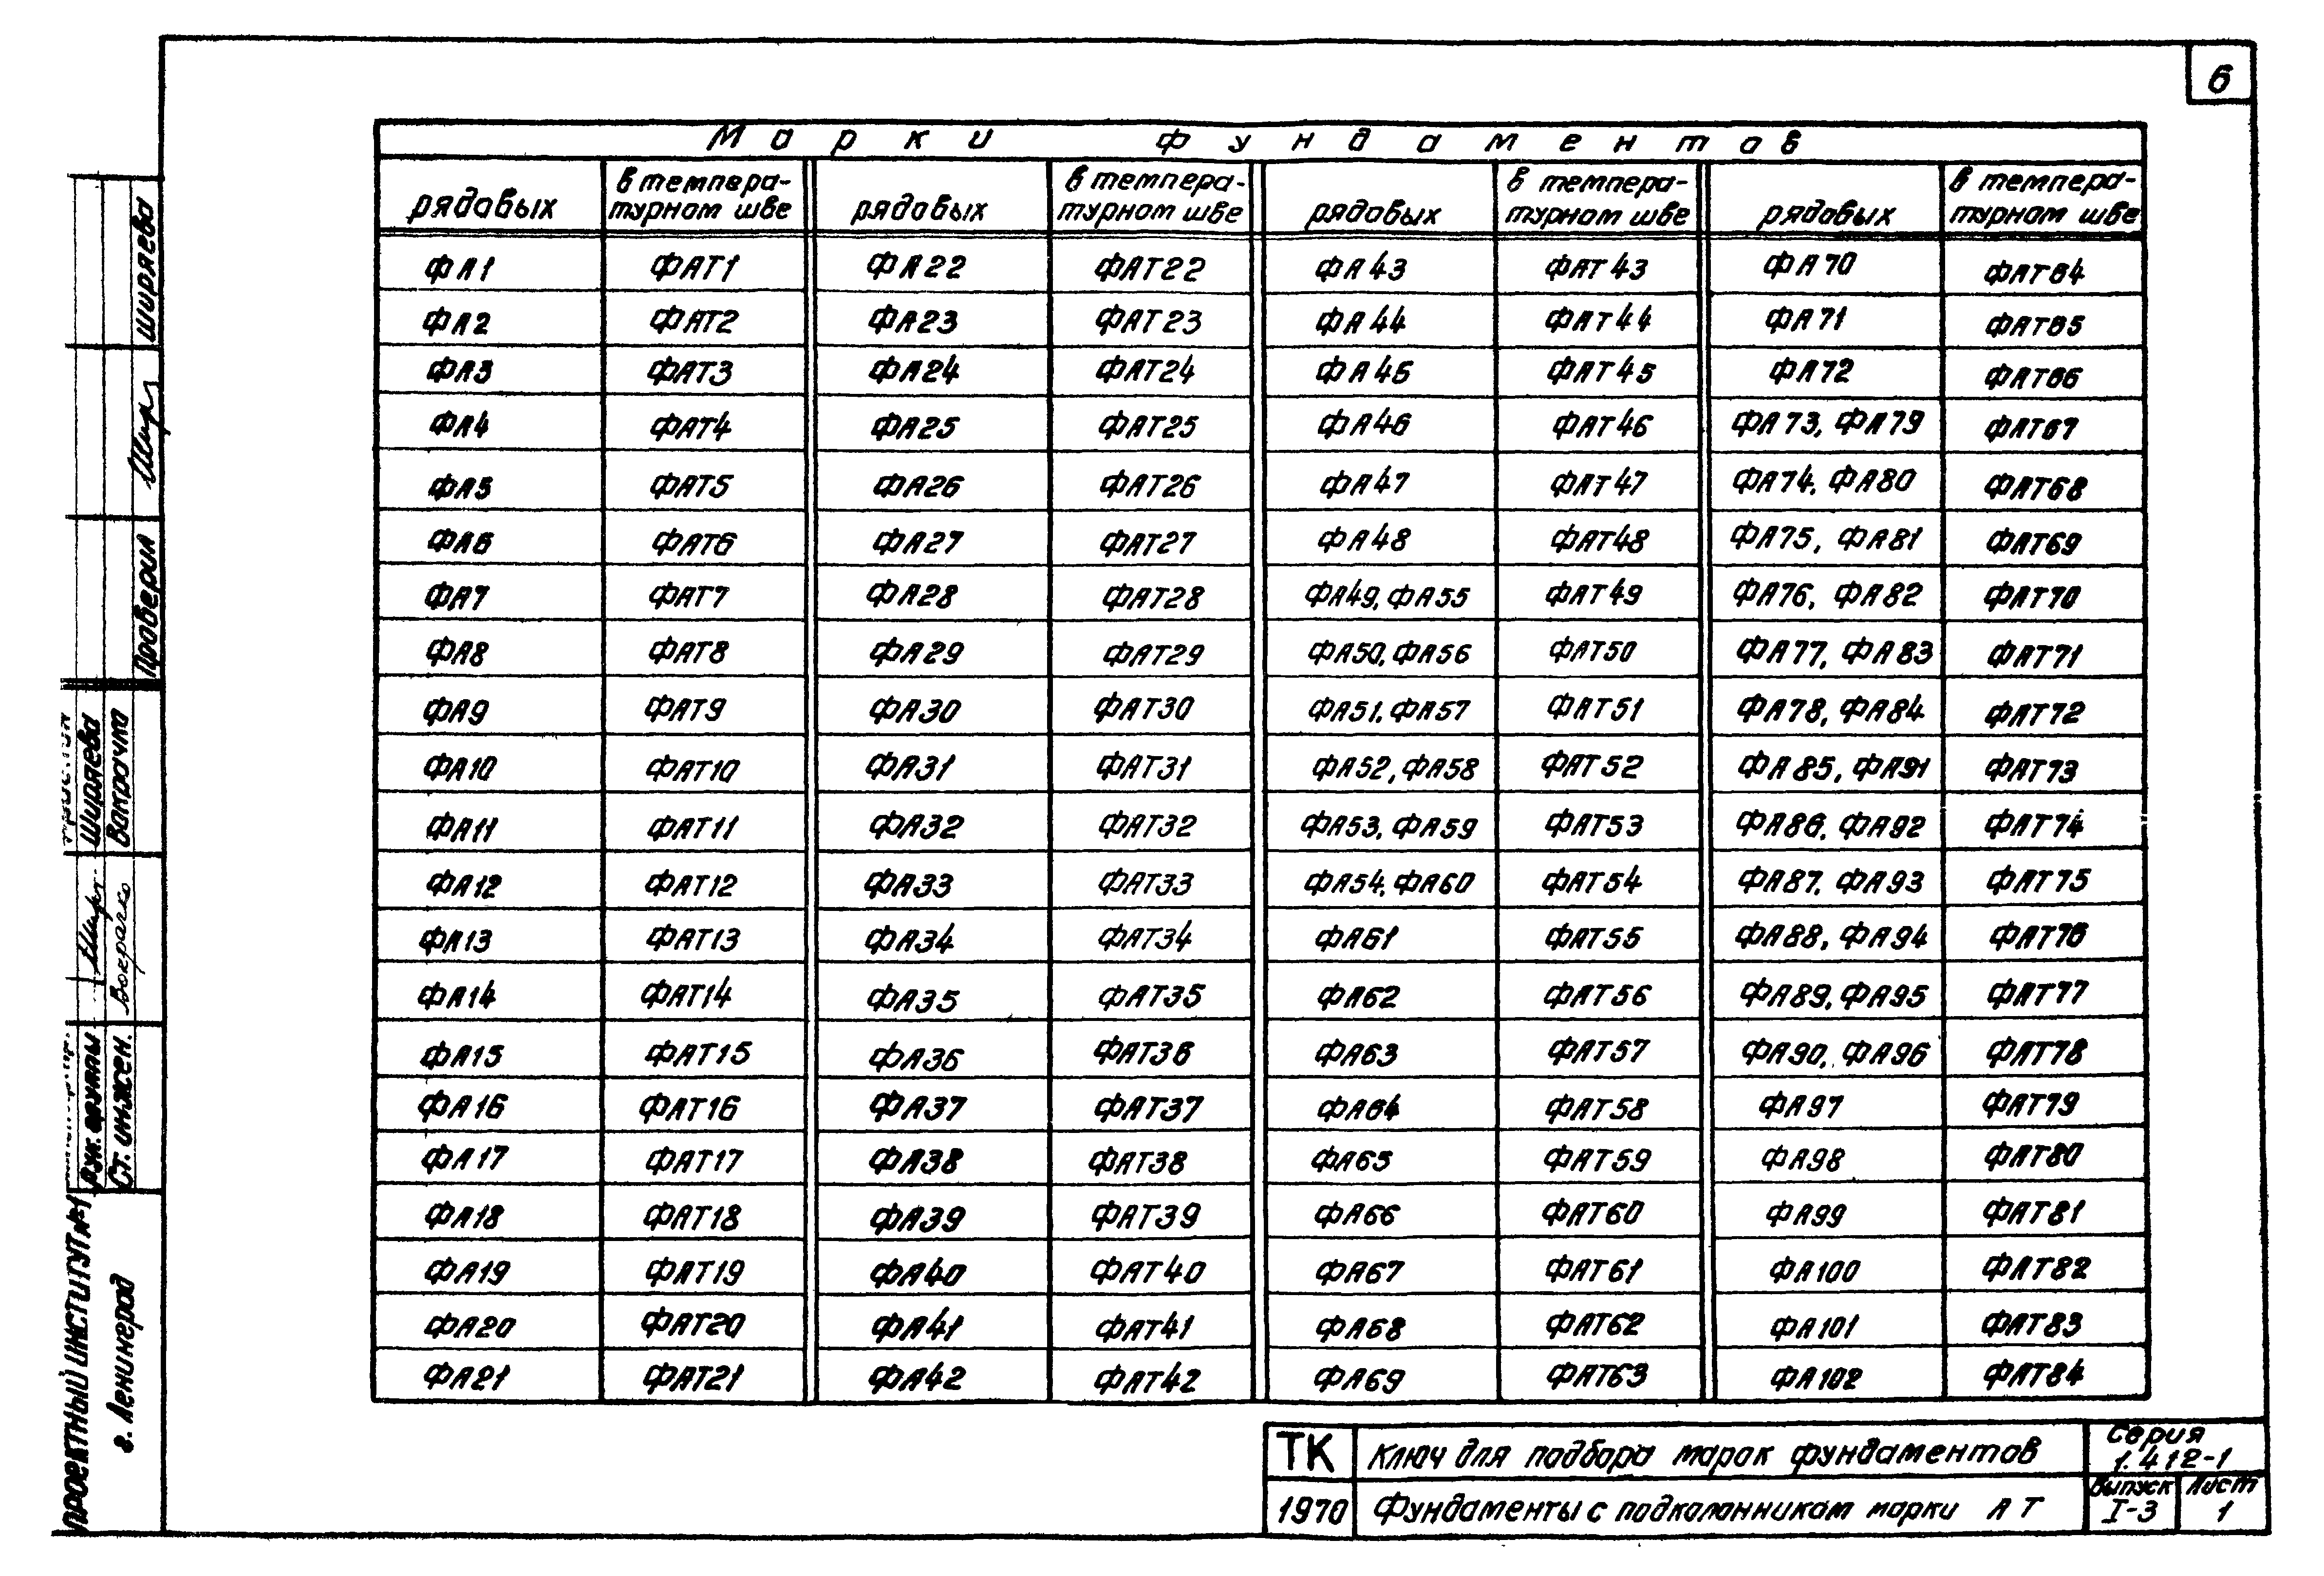 6
Марки фундаментов
рядовых в темпера- рядовых в темпера- рядовых в темпера- рядовых в темпера-
турном шве турном шве турном шве турном шве
ФА1 ФАТ1 ФА22 ФАТ22 ФА43 ФАТ43 ФА70 ФАТ64
ФА2 ФАТ2 ФА23 ФАТ23 ФА44 ФАТ44 ФА71 ФАТ65
ФА3 ФАТ3 ФА24 ФАТ24 ФА45 ФАТ45 ФА72 ФАТ66
ФА4 ФАТ4 ФА25 ФАТ25 ФА46 ФАТ46 ФА73, ФА79 ФАТ67
ФА5 ФАТ5 ФА26 ФАТ26 ФА47 ФАТ47 ФА74, ФА80 ФАТ68
ФА6 ФАТ6 ФА27 ФАТ27 ФА48 ФАТ48 ФА75, ФА81 ФАТ69
ФА7 ФАТ7 ФА28 ФАТ28 ФА49, ФА55 ФАТ49 ФА76, ФА82 ФАТ70
ФА8 ФАТ8 ФА29 ФАТ29 ФА50, ФА56 ФАТ50 ФА77, ФА83 ФАТ71
ФА9 ФАТ9 ФА30 ФАТ30 ФА51, ФА57 ФАТ51 ФА78, ФА84 ФАТ72
ФА10 ФАТ10 ФА31 ФАТ31 ФА52, ФА58 ФАТ52 ФА85, ФА91 ФАТ73
ФА11 ФАТ11 ФА32 ФАТ32 ФА53, ФА59 ФАТ53 ФА86, ФА92 ФАТ74
ФА12 ФАТ12 ФА33 ФАТ33 ФА54, ФА60 ФАТ54 ФА87, ФА93 ФАТ75
ФА13 ФАТ13 ФА34 ФАТ34 ФА61 ФАТ55 ФА88, ФА94 ФАТ76
ФА14 ФАТ14 ФА35 ФАТ35 ФА62 ФАТ56 ФА89, ФА95 ФАТ77
ФА15 ФАТ15 ФА36 ФАТ36 ФА63 ФАТ57 ФА90, ФА96 ФАТ78
ФА16 ФАТ16 ФА37 ФАТ37 ФА64 ФАТ58 ФА97 ФАТ79
ФА17 ФАТ17 ФА38 ФАТ38 ФА65 ФАТ59 ФА98 ФАТ80
ФА18 ФАТ18 ФА39 ФАТ39 ФА66 ФАТ60 ФА99 ФАТ81
ФА19 ФАТ19 ФА40 ФАТ40 ФА67 ФАТ61 ФА100 ФАТ82
ФА20 ФАТ20 ФА41 ФАТ41 ФА68 ФАТ62 ФА101 ФАТ83
ФА21 ФАТ21 ФА42 ФАТ42 ФА69 ФАТ63 ФА102 ФАТ84
ТК Ключ для подбора марок фундаментов Серия
1.412-1
1970 Фундаменты с подколонником марки АТ Выпуск Лист
I-3 1
ПРОЕКТНЫЙ ИНСТИТУТ №1
г. Ленинград
Рук. группы Ширяева
Ст. инжен. Вокрачко Вокрачко
Проверил Ширяева